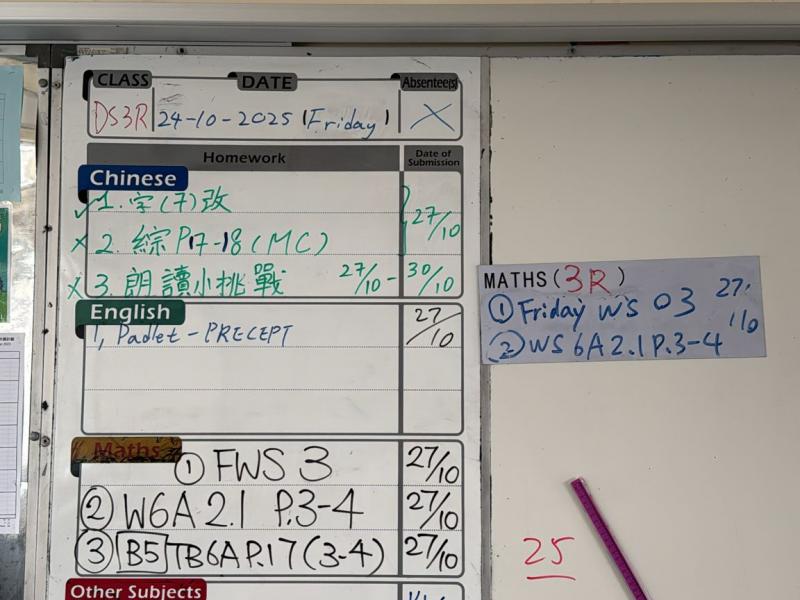 CLASS DATE Absentee(s)
DS3R 24-10-2025 (Friday) X
Homework Date of Submission
Chinese
✓ 1. 字(7)改 27/10
x 2. 綜 P17-18 (MC)
x 3. 朗讀小挑戰 27/10 - 30/10
English
1, Padlet - PRECEPT 27/10
Maths
① FWS 3 27/10
② W6A 2.1 P.3-4 27/10
③ B5 TB6A P.17 (3-4) 27/10
Other Subjects
MATHS (3R)
① Friday WS 03 27/10
② WS 6A 2.1 P.3-4
25